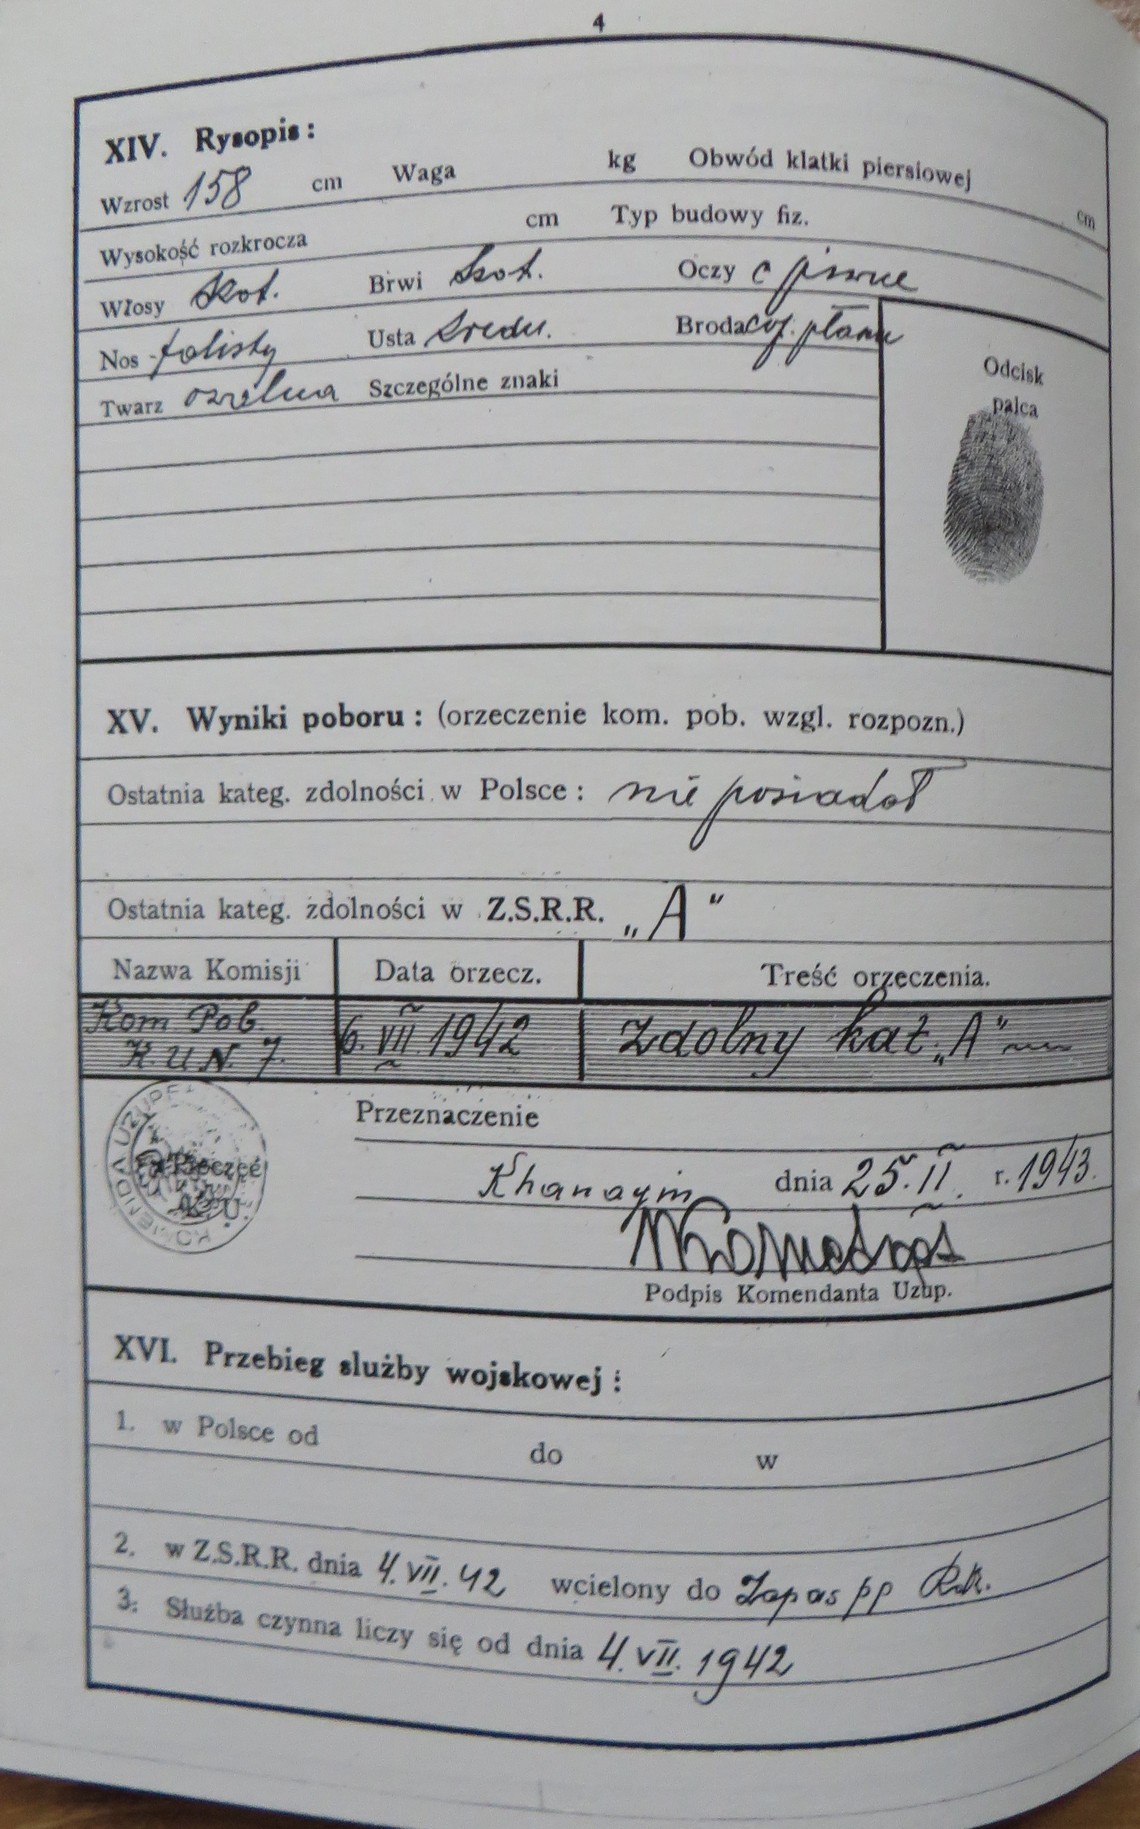 4
XIV. Rysopis:
Wzrost 158 cm Waga kg Obwód klatki piersiowej cm
Wysokość rozkrocza cm Typ budowy fiz.
Włosy Brwi Oczy c piwne
Nos falisty Usta średn. Broda
Twarz owalna Szczególne znaki
Odcisk
palca
XV. Wyniki poboru: (orzeczenie kom. pob. wzgl. rozpozn.)
Ostatnia kateg. zdolności w Polsce: nie posiadał
Ostatnia kateg. zdolności w Z.S.R.R. „A"
Nazwa Komisji Data orzecz. Treść orzeczenia.
Kom Pob. 6. VII 1942 zdolny kat. „A"
K. U. N. 7.
Przeznaczenie
KOMENDA UZUPEŁ
Pieczęć
K. U.
Khanaqin dnia 25. II. r. 1943.
Podpis Komendanta Uzup.
XVI. Przebieg służby wojskowej:
1. w Polsce od do w
2. w Z.S.R.R. dnia 4. VII. 42 wcielony do Zapas pp
3. Służba czynna liczy się od dnia 4. VII. 1942